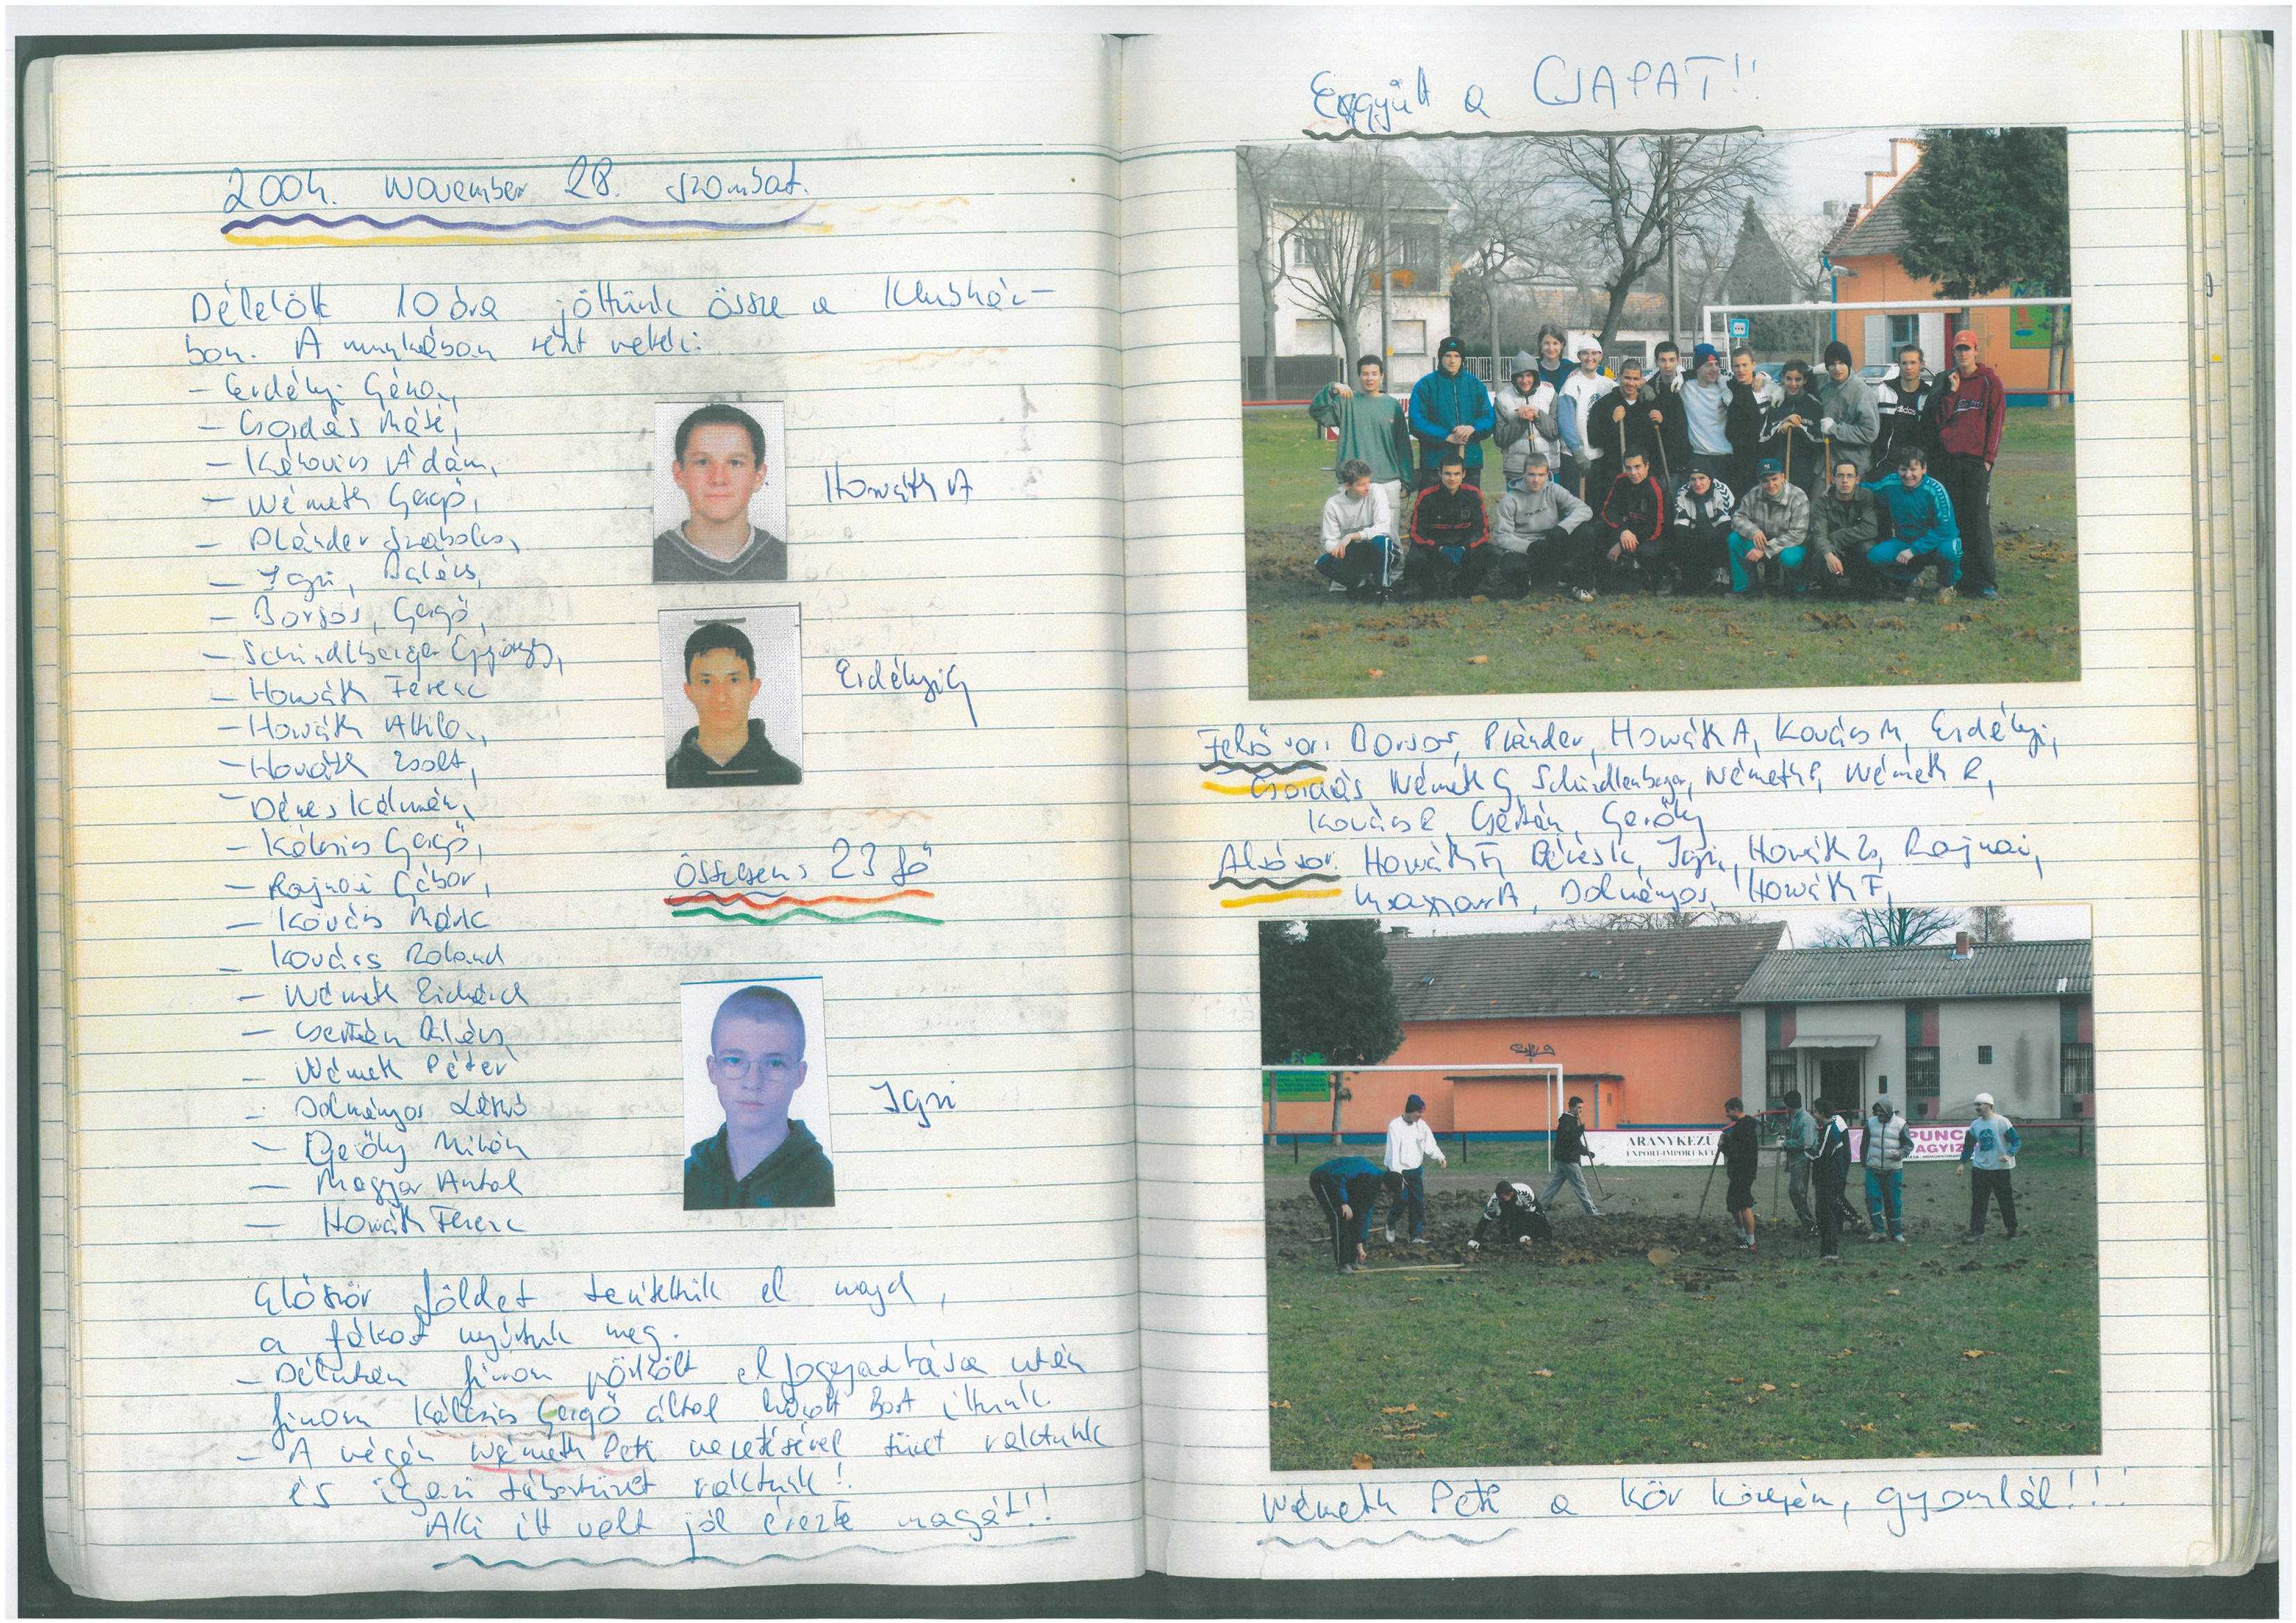 2004. November 28. szombat.
Délelőtt 10 óra jöttünk össze a Klubház-
ban. A munkában részt vettek:
- Erdélyi Géza,
- Csordás Máté,
- Kálovics Ádám,
- Németh Gergő,
- Plánder Szabolcs,
- Igri, Balázs,
- Borsos, Gergő,
- Schindlberger György,
- Horváth Ferenc
- Horváth Attila,
- Horváth Zsolt,
- Dénes Kálmán,
- Kálcsics Gergő,
- Rajnai Gábor,
- Kovács Márk
- Kovács Roland
- Németh Richárd
- Csertán Balázs
- Németh Péter
- Dolmányos
- Gerőly Milán
- Magyar Antal
- Horváth Ferenc
Horváth A
Erdélyi G
Összesen: 23 fő
Igri
Először földet terítettünk el majd,
a fákat nyírtuk meg.
- Délután finom pörkölt elfogyasztása után
finom Kálcsics Gergő által hozott bort ittunk.
- A végén Németh Peti vezetésével tüzet raktunk
és igazi tábortüzet raktunk!
Aki itt volt jól érezte magát!!!
Eggyütt a CSAPAT!!
Felső sor: Borsos, Plánder, Horváth A, Kovács M, Erdélyi,
Csordás, Németh G, Schindlenberger, Németh P, Németh R,
Kovács R, Csertán, Gerőly
Alsó sor: Horváth F, Dénes K, Igri, Horváth Zs, Rajnai,
Magyar A, Dolmányos, Horváth F,
ARANYKEZŰ
EXPORT-IMPORT KFT
PUNC
AGYIZ
Németh Peti a kör közepén, gyomlál!!!